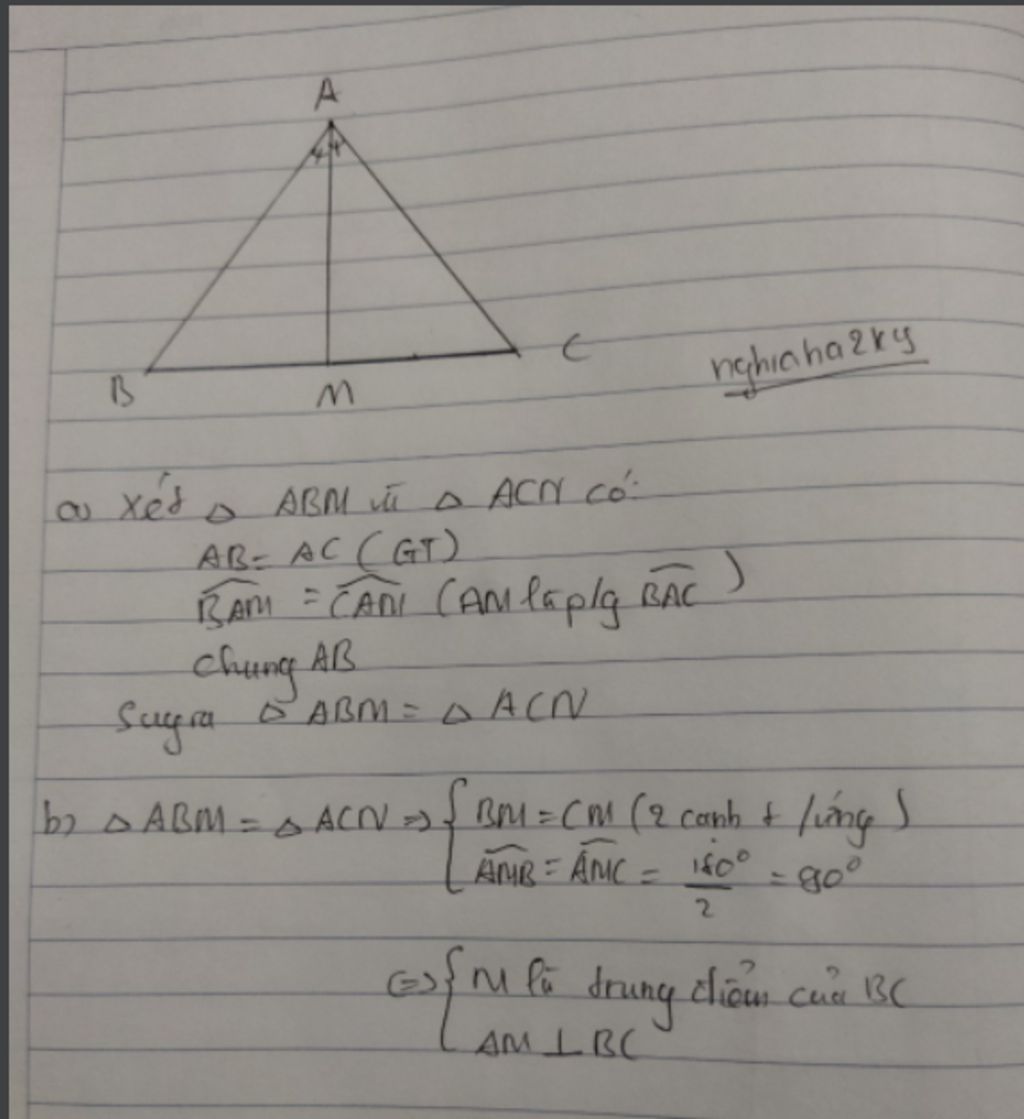 A
B
M
C
nghiaha2k9
a) Xét △ ABM và △ ACN có:
AB = AC (GT)
BAM = CAM (AM là p/g BAC)
chung AB
Suy ra △ ABM = △ ACN
b) △ ABM = △ ACN => { BM = CM (2 cạnh t/ứng)
AMB = AMC = 180°/2 = 90°
<=> { M là trung điểm của BC
AM ⊥ BC